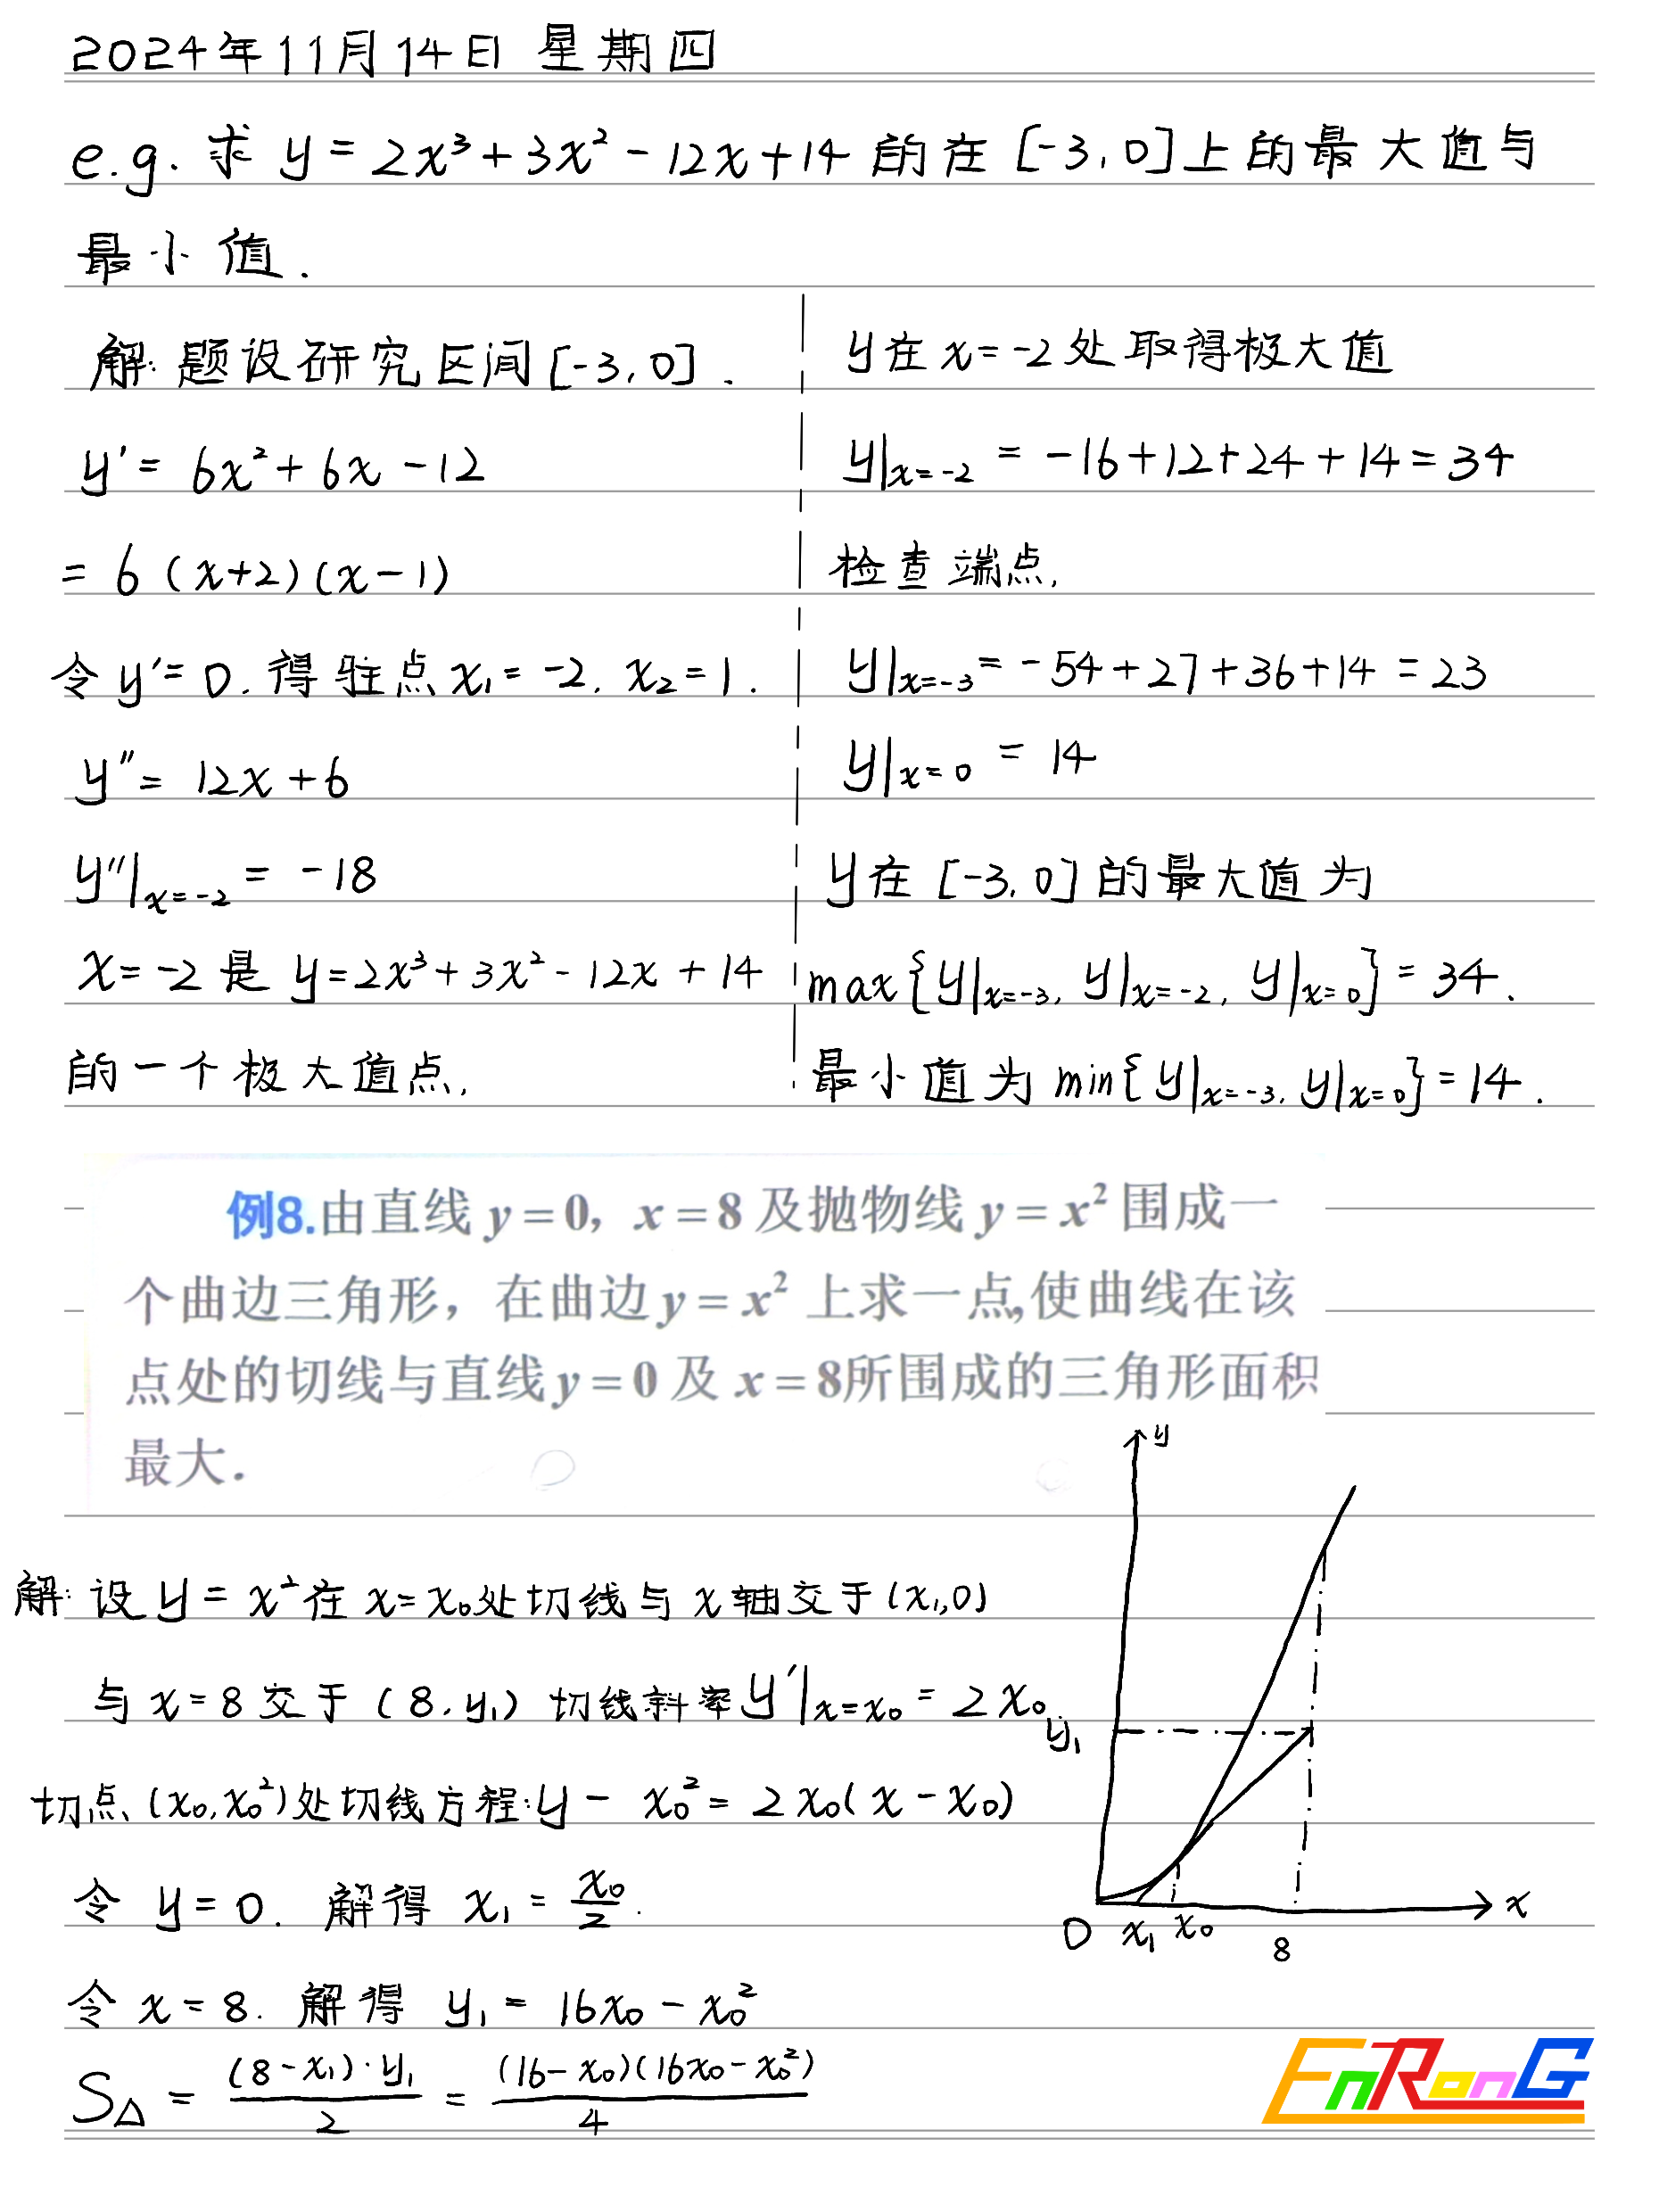 2024年11月14日 星期四
e.g. 求 y = 2x³ + 3x² - 12x + 14 的在 [-3, 0] 上的最大值与
最小值.
解: 题设研究区间 [-3, 0].
y' = 6x² + 6x - 12
= 6 (x+2)(x-1)
令 y' = 0. 得驻点 x₁ = -2. x₂ = 1.
y'' = 12x + 6
y''|x=-2 = -18
x = -2 是 y = 2x³ + 3x² - 12x + 14
的一个极大值点.
y在 x = -2 处取得极大值
y|x=-2 = -16+12+24+14 = 34
检查端点,
y|x=-3 = -54+27+36+14 = 23
y|x=0 = 14
y在 [-3, 0] 的最大值为
max{y|x=-3, y|x=-2, y|x=0} = 34.
最小值为 min{y|x=-3, y|x=0} = 14.
例8.由直线 y = 0, x = 8 及抛物线 y = x² 围成一
个曲边三角形, 在曲边 y = x² 上求一点,使曲线在该
点处的切线与直线 y = 0 及 x = 8所围成的三角形面积
最大.
解: 设 y = x² 在 x = x₀ 处切线与 x 轴交于 (x₁, 0)
与 x = 8 交于 (8, y₁) 切线斜率 y'|x=x₀ = 2x₀
切点 (x₀, x₀²) 处切线方程: y - x₀² = 2x₀(x - x₀)
令 y = 0. 解得 x₁ = x₀/2.
令 x = 8. 解得 y₁ = 16x₀ - x₀²
S△ = (8-x₁)·y₁/2 = (16-x₀)(16x₀-x₀²)/4
y
y₁
O x₁ x₀ 8 x
EnRonG